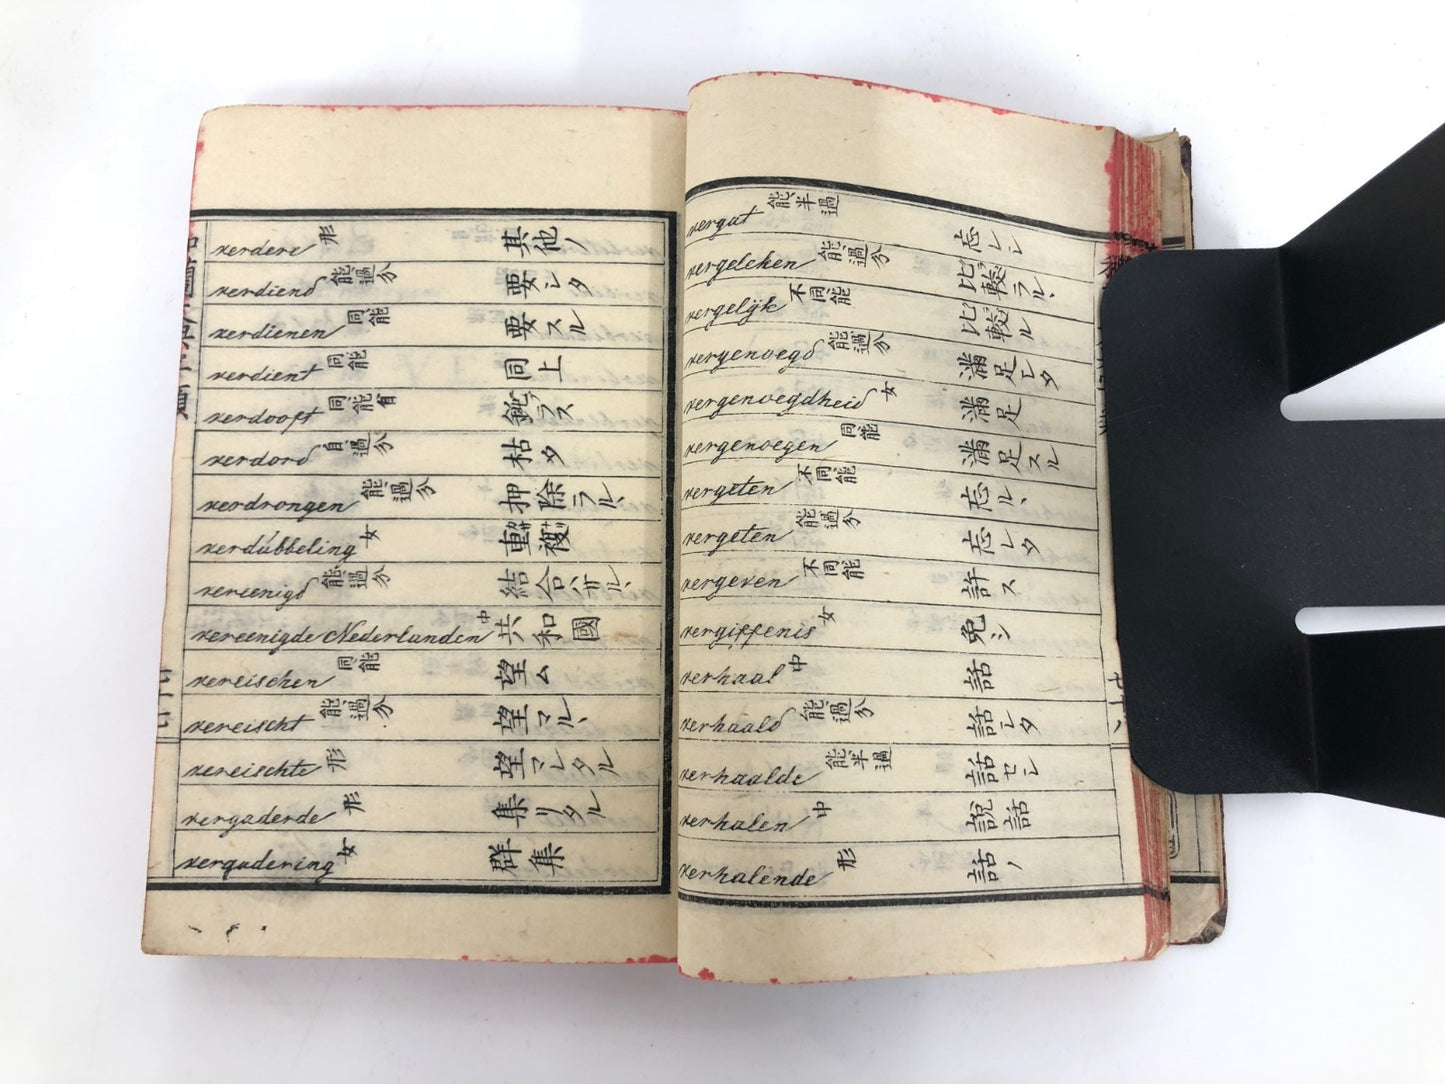 verdere 形 其他ノ
verdiend 能過分 要シタ
verdienen 同能 要スル
verdient 同能 同上
verdooft 同能自 鈍ラス
verdord 自過分 枯タ
verdrongen 能過分 押除ラル丶
verdubbeling 女 重複
vereenigd 能過分 結合サル丶
vereenigde Nederlanden 中 共和國
vereischen 同能 望ム
vereischt 能過分 望マル丶
vereischte 形 望マレタル
vergaderde 形 集リタル
vergadering 女 群集
vergat 能半過 忘レシ
vergeleken 能過分 比較ラル丶
vergelijk 不同能 比較ル
vergenoegd 能過分 満足シタ
vergenoegdheid 女 満足
vergenoegen 同能 満足スル
vergeten 不同能 忘ル丶
vergeten 能過分 忘レタ
vergeven 不同能 許ス
vergiffenis 女 免シ
verhaal 中 話
verhaald 能過分 話シタ
verhaalde 能半過 話セシ
verhalen 中 説話
verhalende 形 話ノ